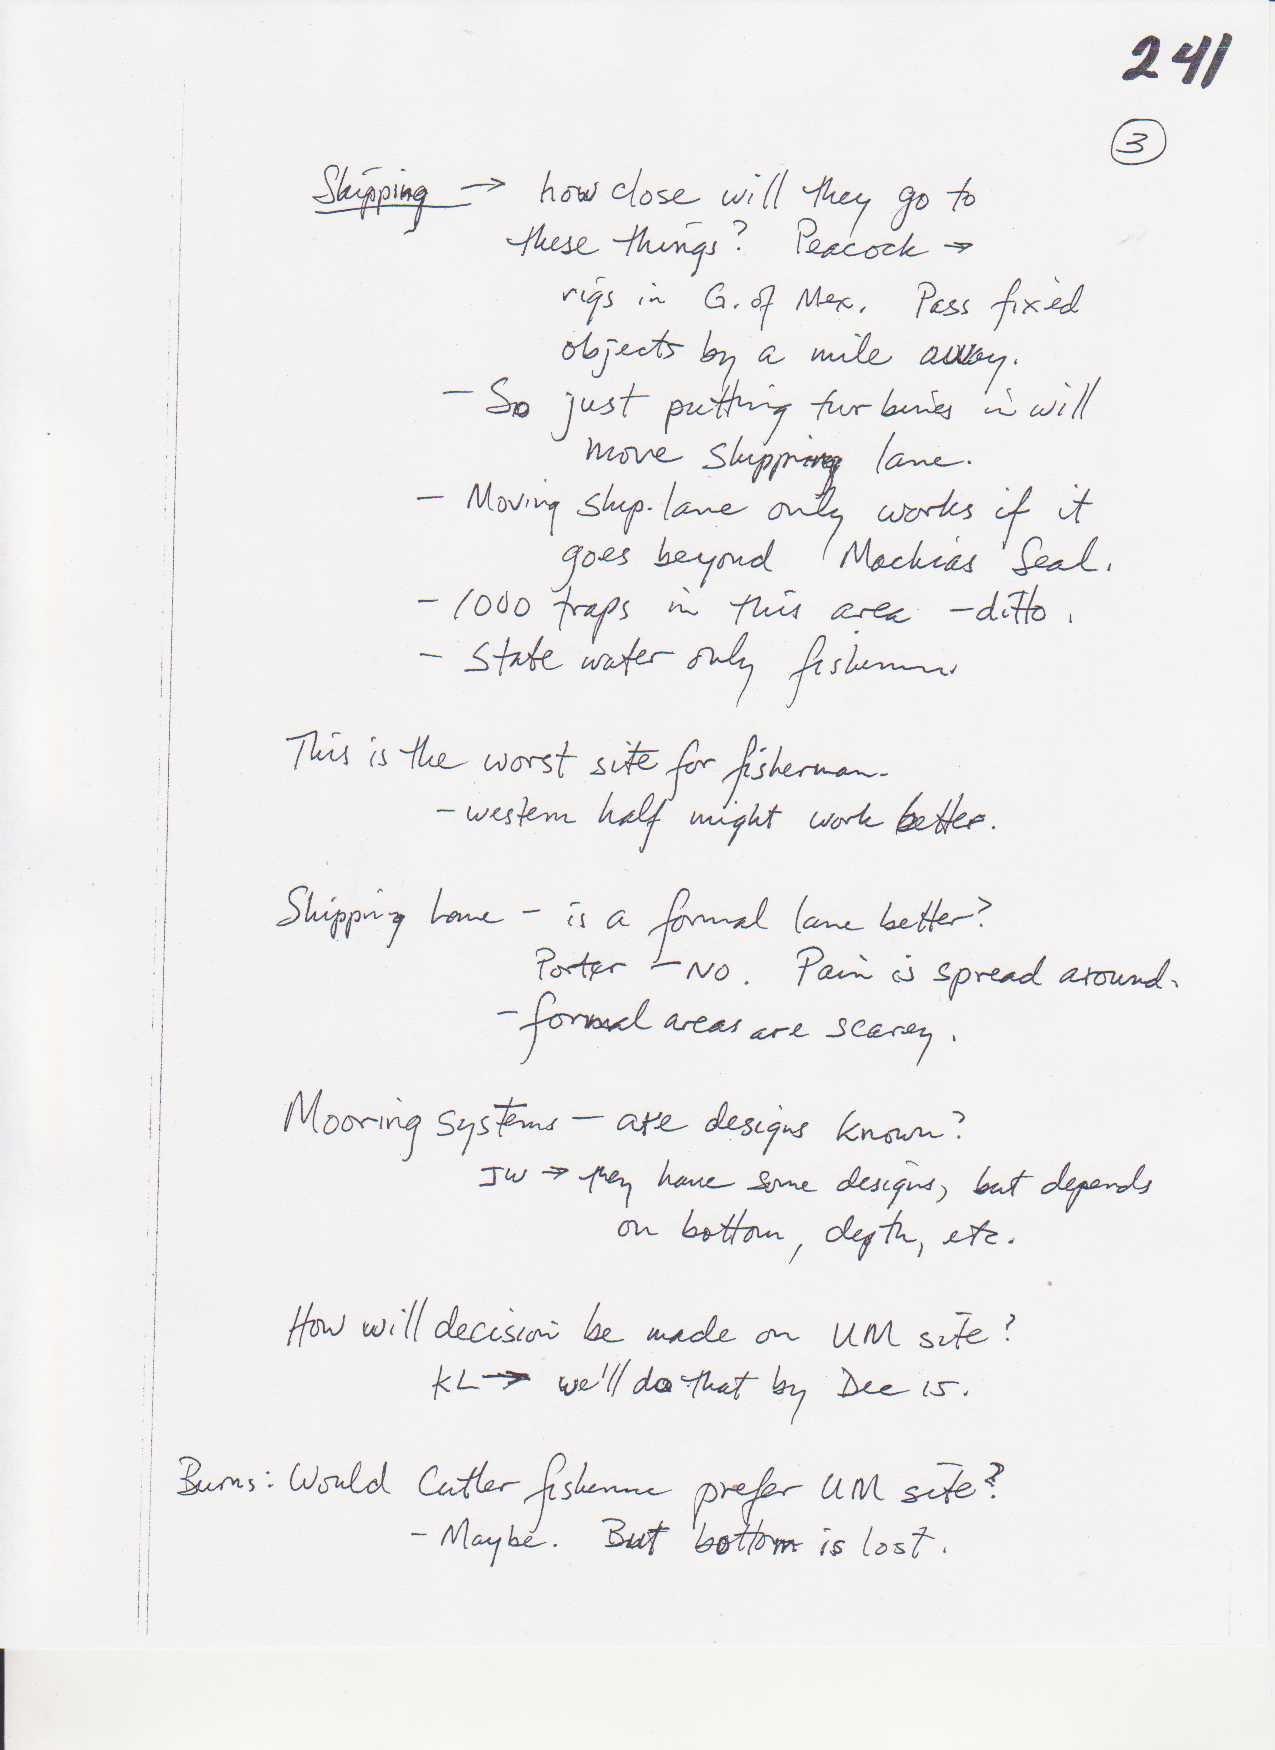 241
3
Shipping → how close will they go to
these things? Peacock →
rigs in G. of Mex. Pass fixed
objects by a mile away.
- So just putting turbines in will
move shipping lane.
- Moving ship. lane only works if it
goes beyond Machias Seal.
- 1000 traps in this area - ditto.
- State water only fishermen
This is the worst site for fisherman.
- western half might work better.
Shipping lane - is a formal lane better?
Porter - NO. Pain is spread around.
- formal areas are scarey.
Mooring systems - are designs known?
JW → they have some designs, but depends
on bottom, depth, etc.
How will decision be made on UM site?
KL → we'll do that by Dec 15.
Burns: Would Cutler fishermen prefer UM site?
- Maybe. But bottom is lost.